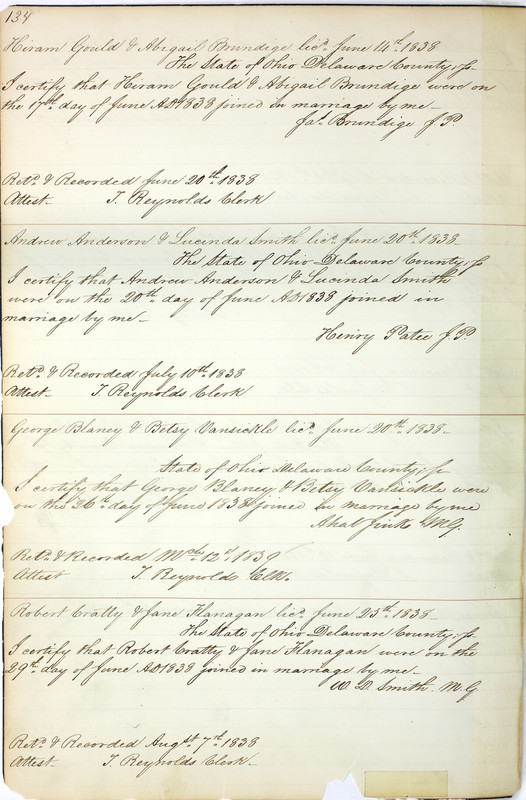 134
Hiram Gould & Abigail Brundige licd. June 14th. 1838
The State of Ohio Delaware County, ss
I certify that Hiram Gould & Abigail Brundige were on
the 17th. day of June AD1838 joined in marriage by me_
Jas. Brundige J.P.
Retd. & Recorded June 20th. 1838
Attest. T. Reynolds Clerk
Andrew Anderson & Lucinda Smith licd. June 20th. 1838_
The State of Ohio Delaware County, ss
I certify that Andrew Anderson & Lucinda Smith
were on the 20th. day of June AD1838 joined in
marriage by me_
Henry Patee J.P.
Retd. & Recorded July 10th. 1838
Attest_ T. Reynolds Clerk
George Blaney & Betsy Vansickle licd. June 20th. 1838_
State of Ohio Delaware County, ss
I certify that George Blaney & Betsy Vansickle were
on the 26th. day of June 1838 joined in marriage by me
Jinks M.G.
Retd. & Recorded Mch. 12th. 1839
Attest T. Reynolds Clk.
Robert Cratty & Jane Flanagan licd. June 25th. 1838_
The State of Ohio Delaware County, ss
I certify that Robert Cratty & Jane Flanagan were on the
29th. day of June AD1838 joined in marriage by me_
W. D. Smith. M.G
Retd. & Recorded Augst. 7th. 1838
Attest. T. Reynolds Clerk_